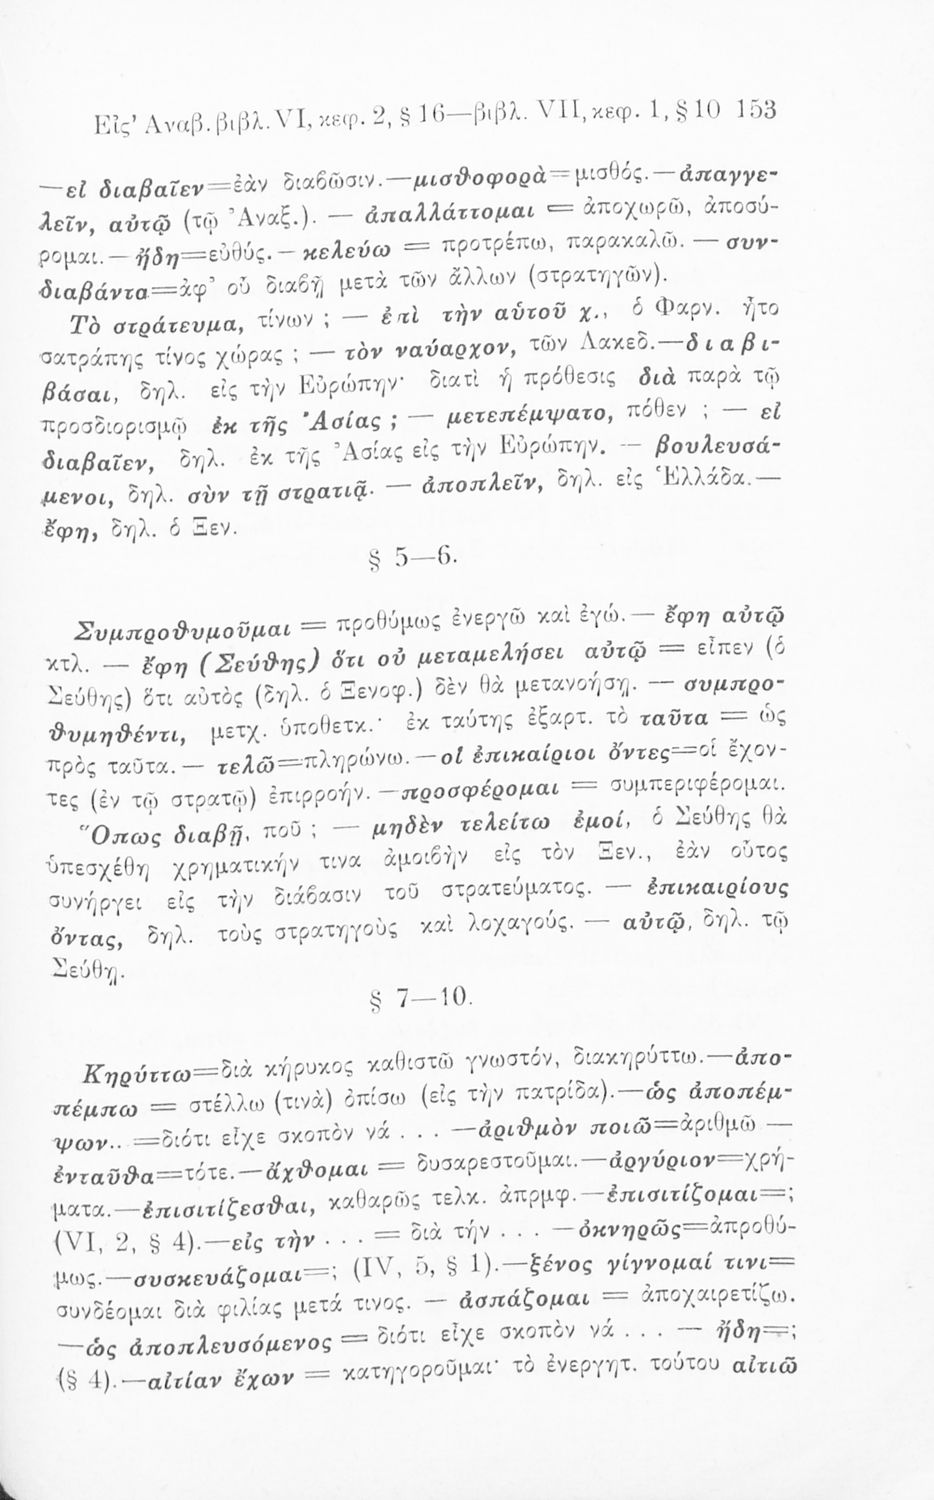 Εἰς Ἀναβ. βιβλ. VI, κεφ. 2, § 16—βιβλ. VII, κεφ. 1, § 10 153
—εἰ διαβαῖεν=ἐὰν διαβῶσιν.—μισθοφορὰ=μισθός.—ἀπαγγε-
λεῖν, αὐτῷ (τῷ Ἀναξ.). — ἀπαλλάττομαι = ἀποχωρῶ, ἀποσύ-
ρομαι.—ἤδη=εὐθύς.—κελεύω = προτρέπω, παρακαλῶ. — συν-
διαβάντα=ἀφ’ οὗ διαβῇ μετὰ τῶν ἄλλων (στρατηγῶν).
Τὸ στράτευμα, τίνων ; — ἐπὶ τὴν αὑτοῦ χ., ὁ Φαρν. ἦτο
σατράπης τίνος χώρας ; — τὸν ναύαρχον, τῶν Λακεδ.—διαβι-
βάσαι, δηλ. εἰς τὴν Εὐρώπην· διατὶ ἡ πρόθεσις διὰ παρὰ τῷ
προσδιορισμῷ ἐκ τῆς Ἀσίας ; — μετεπέμψατο, πόθεν ; — εἰ
διαβαῖεν, δηλ. ἐκ τῆς Ἀσίας εἰς τὴν Εὐρώπην. — βουλευσά-
μενοι, δηλ. σὺν τῇ στρατιᾷ. — ἀποπλεῖν, δηλ. εἰς Ἑλλάδα.—
ἔφη, δηλ. ὁ Ξεν.
§ 5—6.
Συμπροθυμοῦμαι = προθύμως ἐνεργῶ καὶ ἐγώ.— ἔφη αὐτῷ
κτλ. — ἔφη (Σεύθης) ὅτι οὐ μεταμελήσει αὐτῷ = εἶπεν (ὁ
Σεύθης) ὅτι αὐτὸς (δηλ. ὁ Ξενοφ.) δὲν θὰ μετανοήσῃ. — συμπρο-
θυμηθέντι, μετχ. ὑποθετκ.· ἐκ ταύτης ἐξαρτ. τὸ ταῦτα = ὡς
πρὸς ταῦτα.— τελῶ=πληρώνω.—οἱ ἐπικαίριοι ὄντες=οἱ ἔχον-
τες (ἐν τῷ στρατῷ) ἐπιρροήν.—προσφέρομαι = συμπεριφέρομαι.
Ὅπως διαβῇ, ποῦ ; — μηδὲν τελείτω ἐμοί, ὁ Σεύθης θὰ
ὑπεσχέθη χρηματικήν τινα ἀμοιβὴν εἰς τὸν Ξεν., ἐὰν οὗτος
συνήργει εἰς τὴν διάβασιν τοῦ στρατεύματος. — ἐπικαιρίους
ὄντας, δηλ. τοὺς στρατηγοὺς καὶ λοχαγούς. — αὐτῷ, δηλ. τῷ
Σεύθῃ.
§ 7—10.
Κηρύττω=διὰ κήρυκος καθιστῶ γνωστόν, διακηρύττω.—ἀπο-
πέμπω = στέλλω (τινὰ) ὀπίσω (εἰς τὴν πατρίδα).—ὡς ἀποπέμ-
ψων.. =διότι εἶχε σκοπὸν νά . . . —ἀριθμὸν ποιῶ=ἀριθμῶ —
ἐνταῦθα=τότε.—ἄχθομαι = δυσαρεστοῦμαι.—ἀργύριον=χρή-
ματα.—ἐπισιτίζεσθαι, καθαρῶς τελκ. ἀπρμφ.—ἐπισιτίζομαι=;
(VI, 2, § 4).—εἰς τὴν . . . = διὰ τήν . . . —ὀκνηρῶς=ἀπροθύ-
μως.—συσκευάζομαι=; (IV, 5, § 1).—ξένος γίγνομαί τινι=
συνδέομαι διὰ φιλίας μετά τινος. — ἀσπάζομαι = ἀποχαιρετίζω.
—ὡς ἀποπλευσόμενος = διότι εἶχε σκοπὸν νά . . . — ἤδη=;
(§ 4).—αἰτίαν ἔχων = κατηγοροῦμαι· τὸ ἐνεργητ. τούτου αἰτιῶ